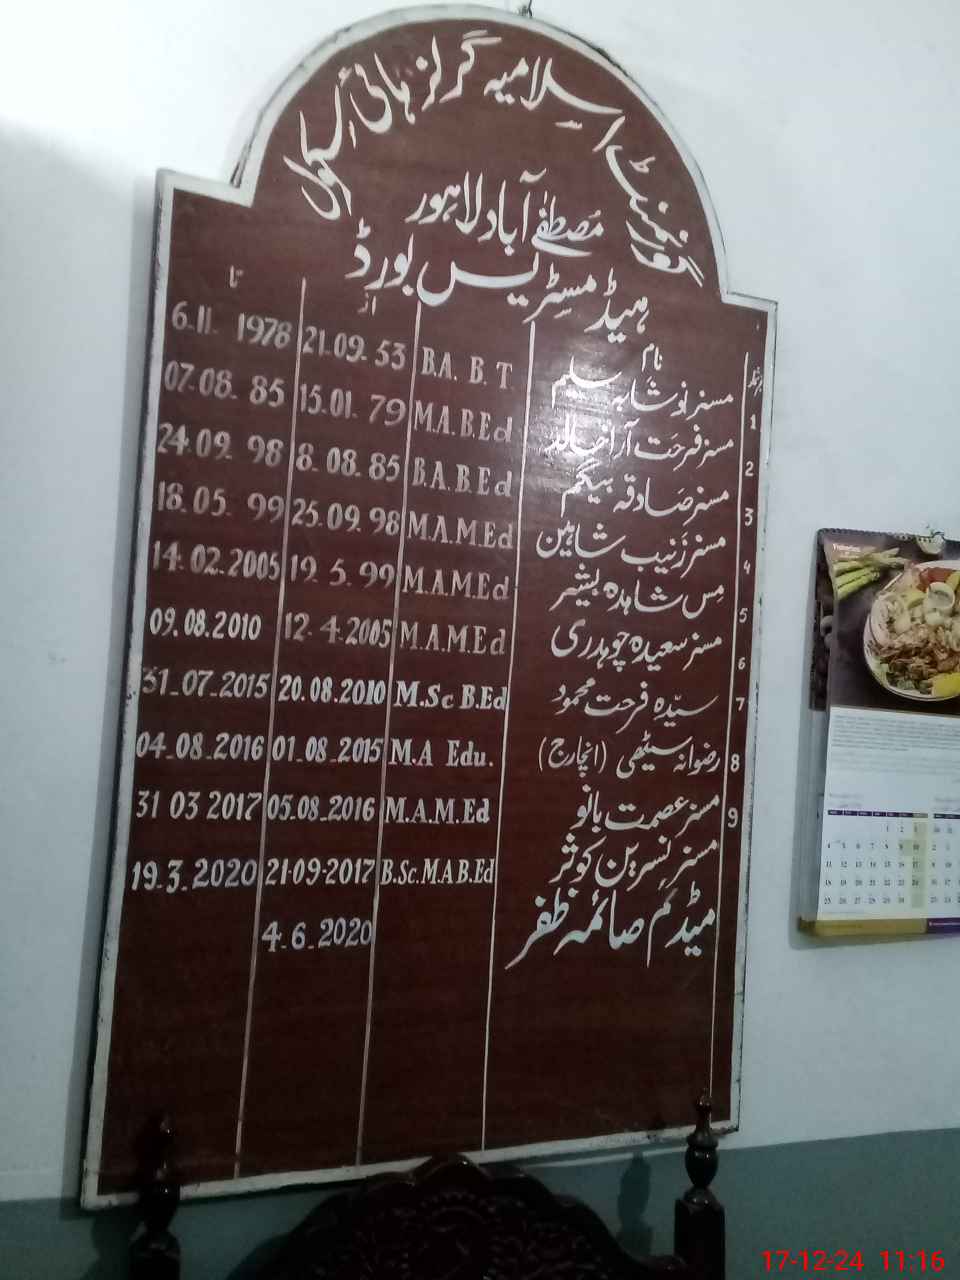 گورنمنٹ اسلامیہ گرلز ہائی سکول
مصطفےٰ آباد لاہور
ہیڈ مسٹریس بورڈ
نمبر شمار نام از تا
1 مسز نوشابہ سلیم B.A. B.T. 21-09-53 6-11-1978
2 مسز فرحت آرا خالد M.A.B.Ed 15.01.79 07-08-85
3 مسز صادقہ بیگم B.A.B.Ed 8-08.85 24.09.98
4 مسز زینب شاہین M.A.M.Ed 25.09.98 18.05.99
5 مس شاہدہ بشیر M.A.M.Ed 19.5.99 14.02.2005
6 مسز سعیدہ چوہدری M.A.M.Ed 12-4-2005 09.08.2010
7 سیّدہ فرحت محمود M.Sc B.Ed 20.08.2010 31-07-2015
8 رضوانہ سیٹھی (انچارج) M.A Edu. 01-08-2015 04-08-2016
9 مسز عصمت بانو M.A.M.Ed 05.08-2016 31 03 2017
مسز نسرین کوثر B.Sc.M.A B.Ed 21-09-2017 19-3-2020
میڈم صائمہ ظفر 4-6-2020
17-12-24 11:16